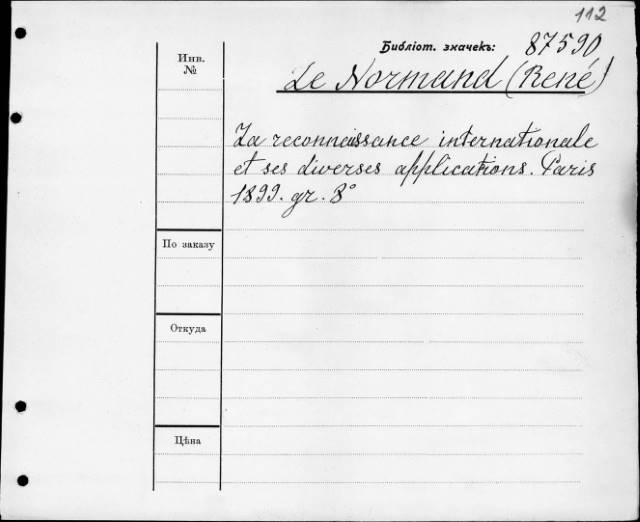 112
Библіот. значекъ: 87590
Инв.
№
Le Normand (René)
La reconnaissance internationale
et ses diverses applications. Paris
1899. gr. 8°
По заказу
Откуда
Цѣна